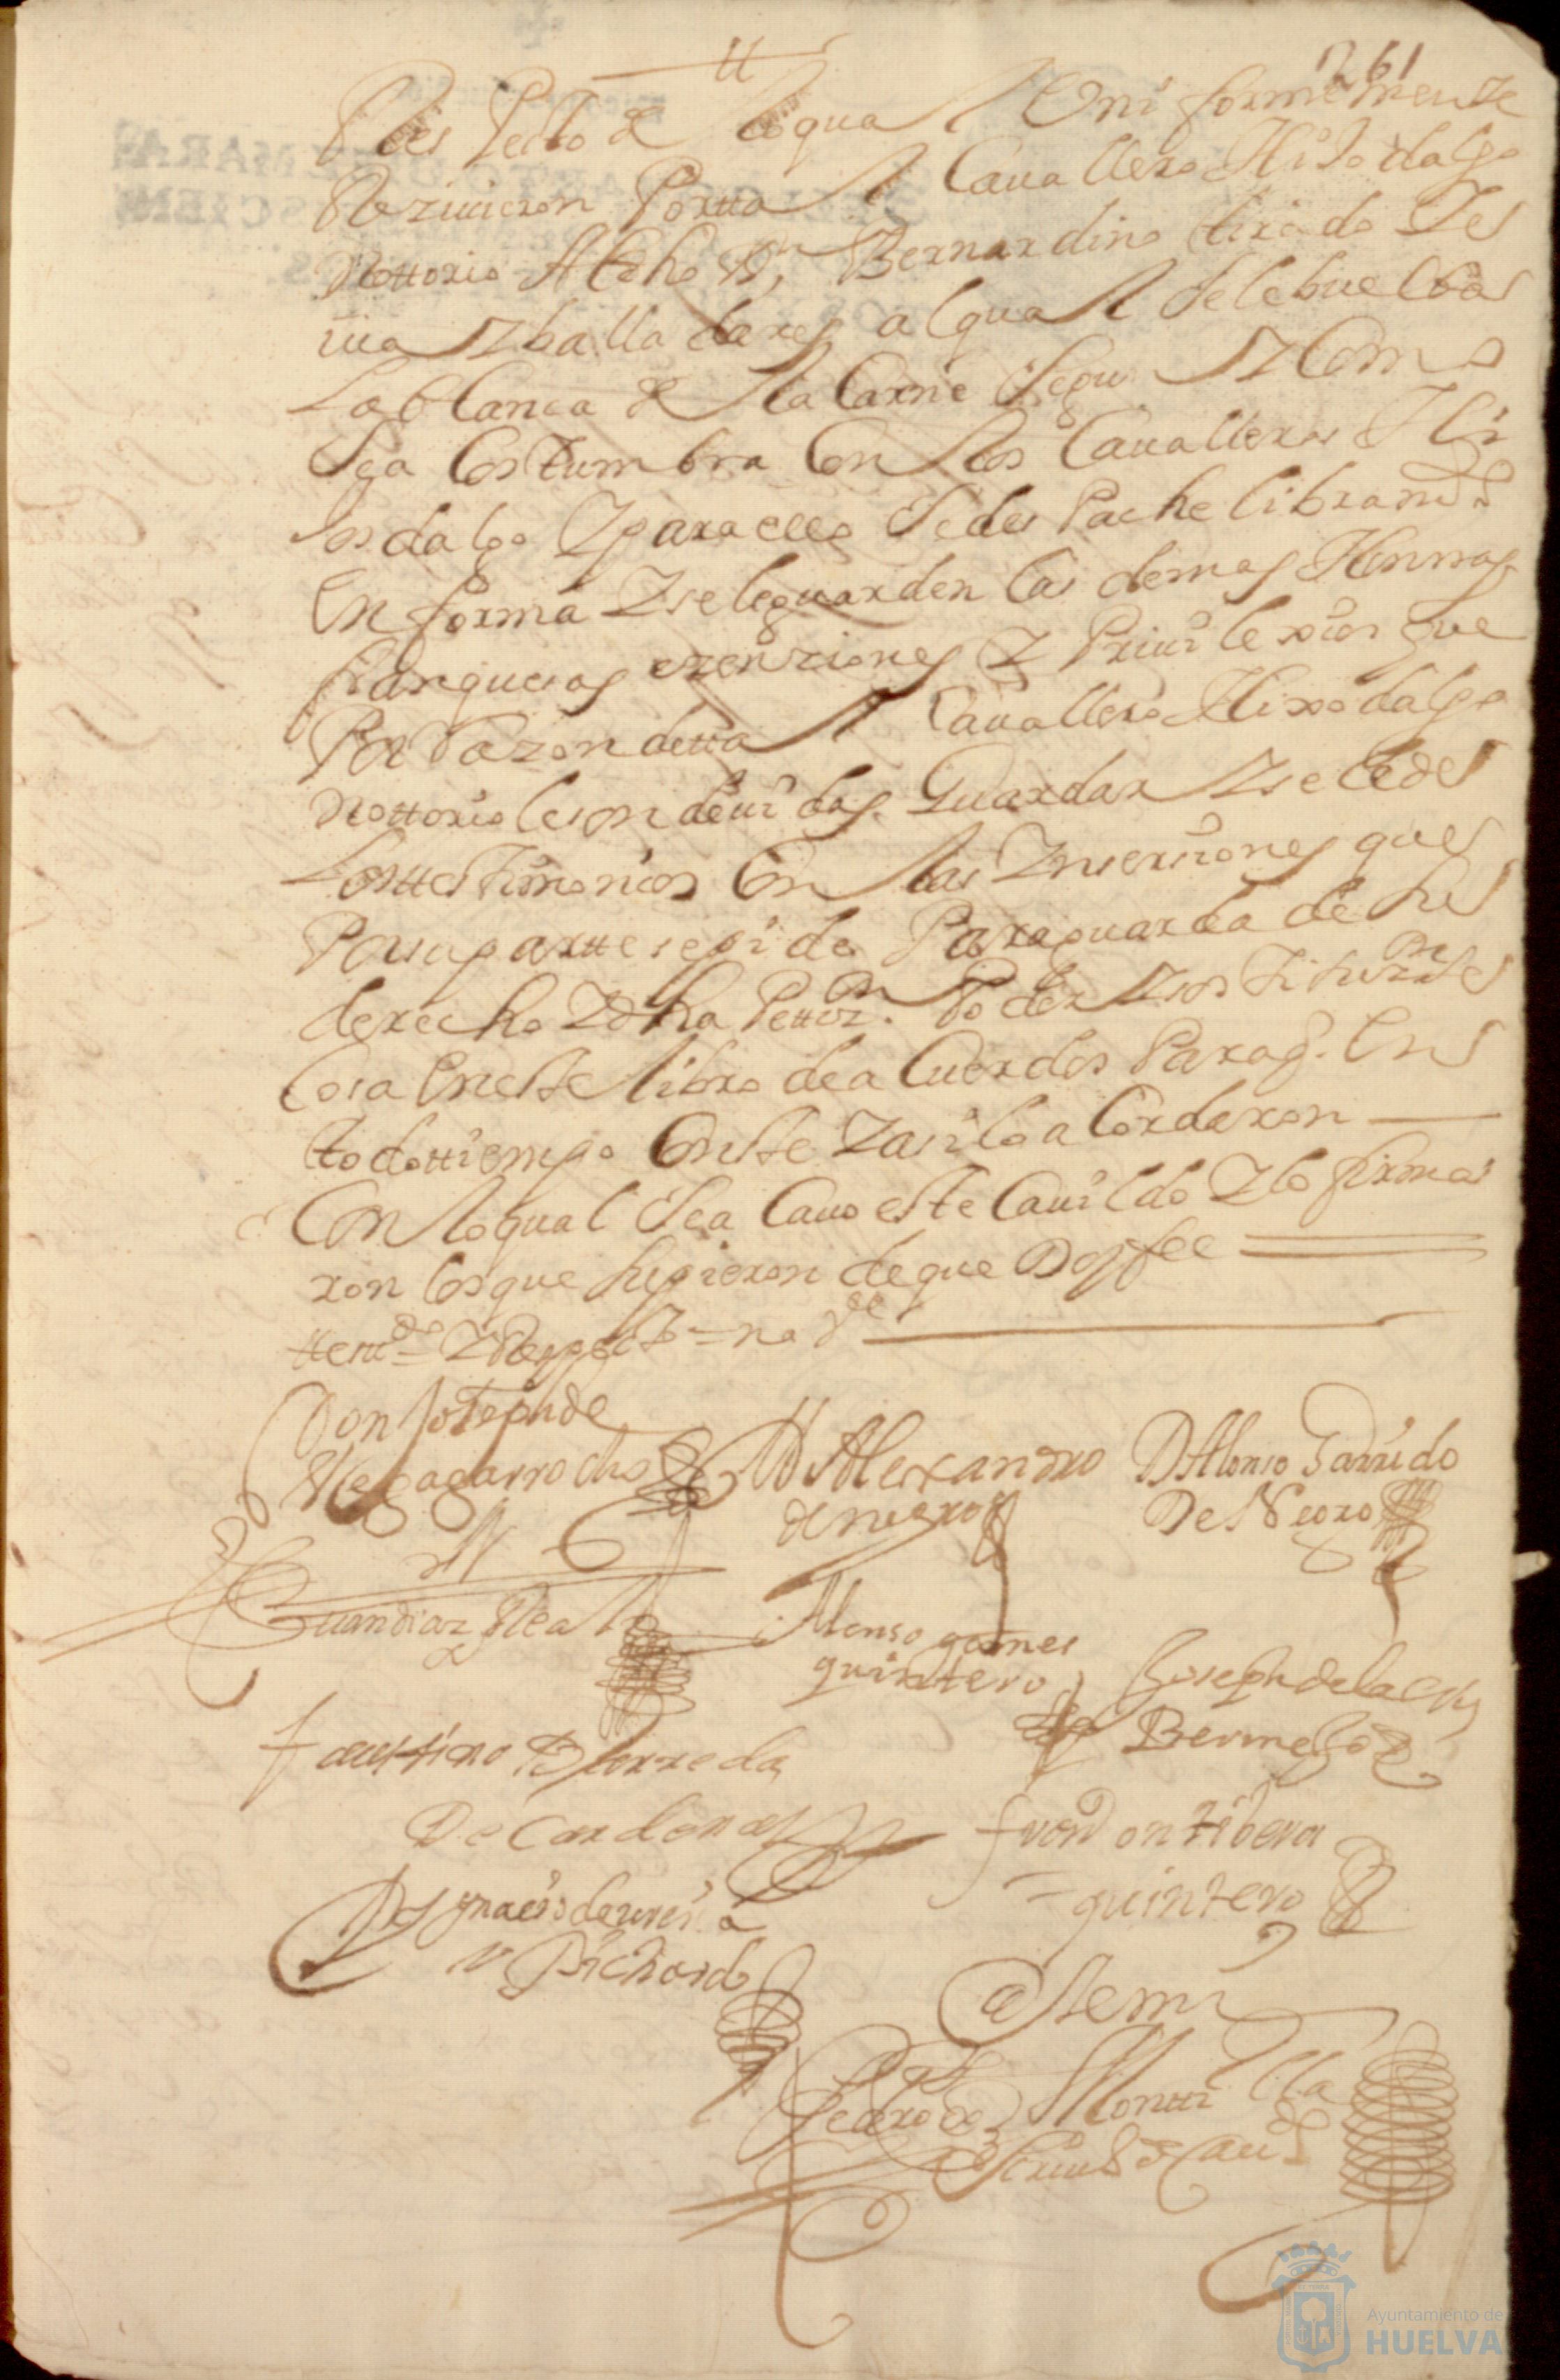 261
Respecto de lo qual Uniformemente
Rezivieron Por tal Cauallero Hijo dalgo
Nottorio Al dho Dn Bernardino tirado Le
iua Z balladares al qual se le buelba
La blanca de la Carne segun Z Como
Sea Costumbra Con los Caualleros Hi
Jos dalgo Z para ello se des Pache libramto
En forma Z se le guarden las demas Honrras
franquezas exenziones Z Priuilexios que
Por Razon de tal Cauallero Hixo dalgo
Nottorio le son deuidas Guardar Z se le de
Los ttestimonios Con las Znserziones que
Por su partte se pidio Para guarda de su
derecho Z dha Pettizn Poder Z sostituzn se
Cosa En este libro de a Cuerdos Para q. En
todo ttiempo Conste Z asi lo a Cordaron
Con lo qual se a Cauo este Cauildo Z lo firma
ron los que supieron de que Doy fee
ttenido = Z Respecto = na Ve
Don Joseph de
Vega garrocho
D Alexandro
de negro
D Alonso Garrido
De Negro
Juan diaz Real
Alonso gomes
quintero
Joseph de la
Bermejo
faustino De Forreda
De Cardenas
Juan ontibera
quintero
D Ygnacio de
Pichardo
Ante mi
Pedro de Montti lla
Scriuo de Cauo
Ayuntamiento de
HUELVA